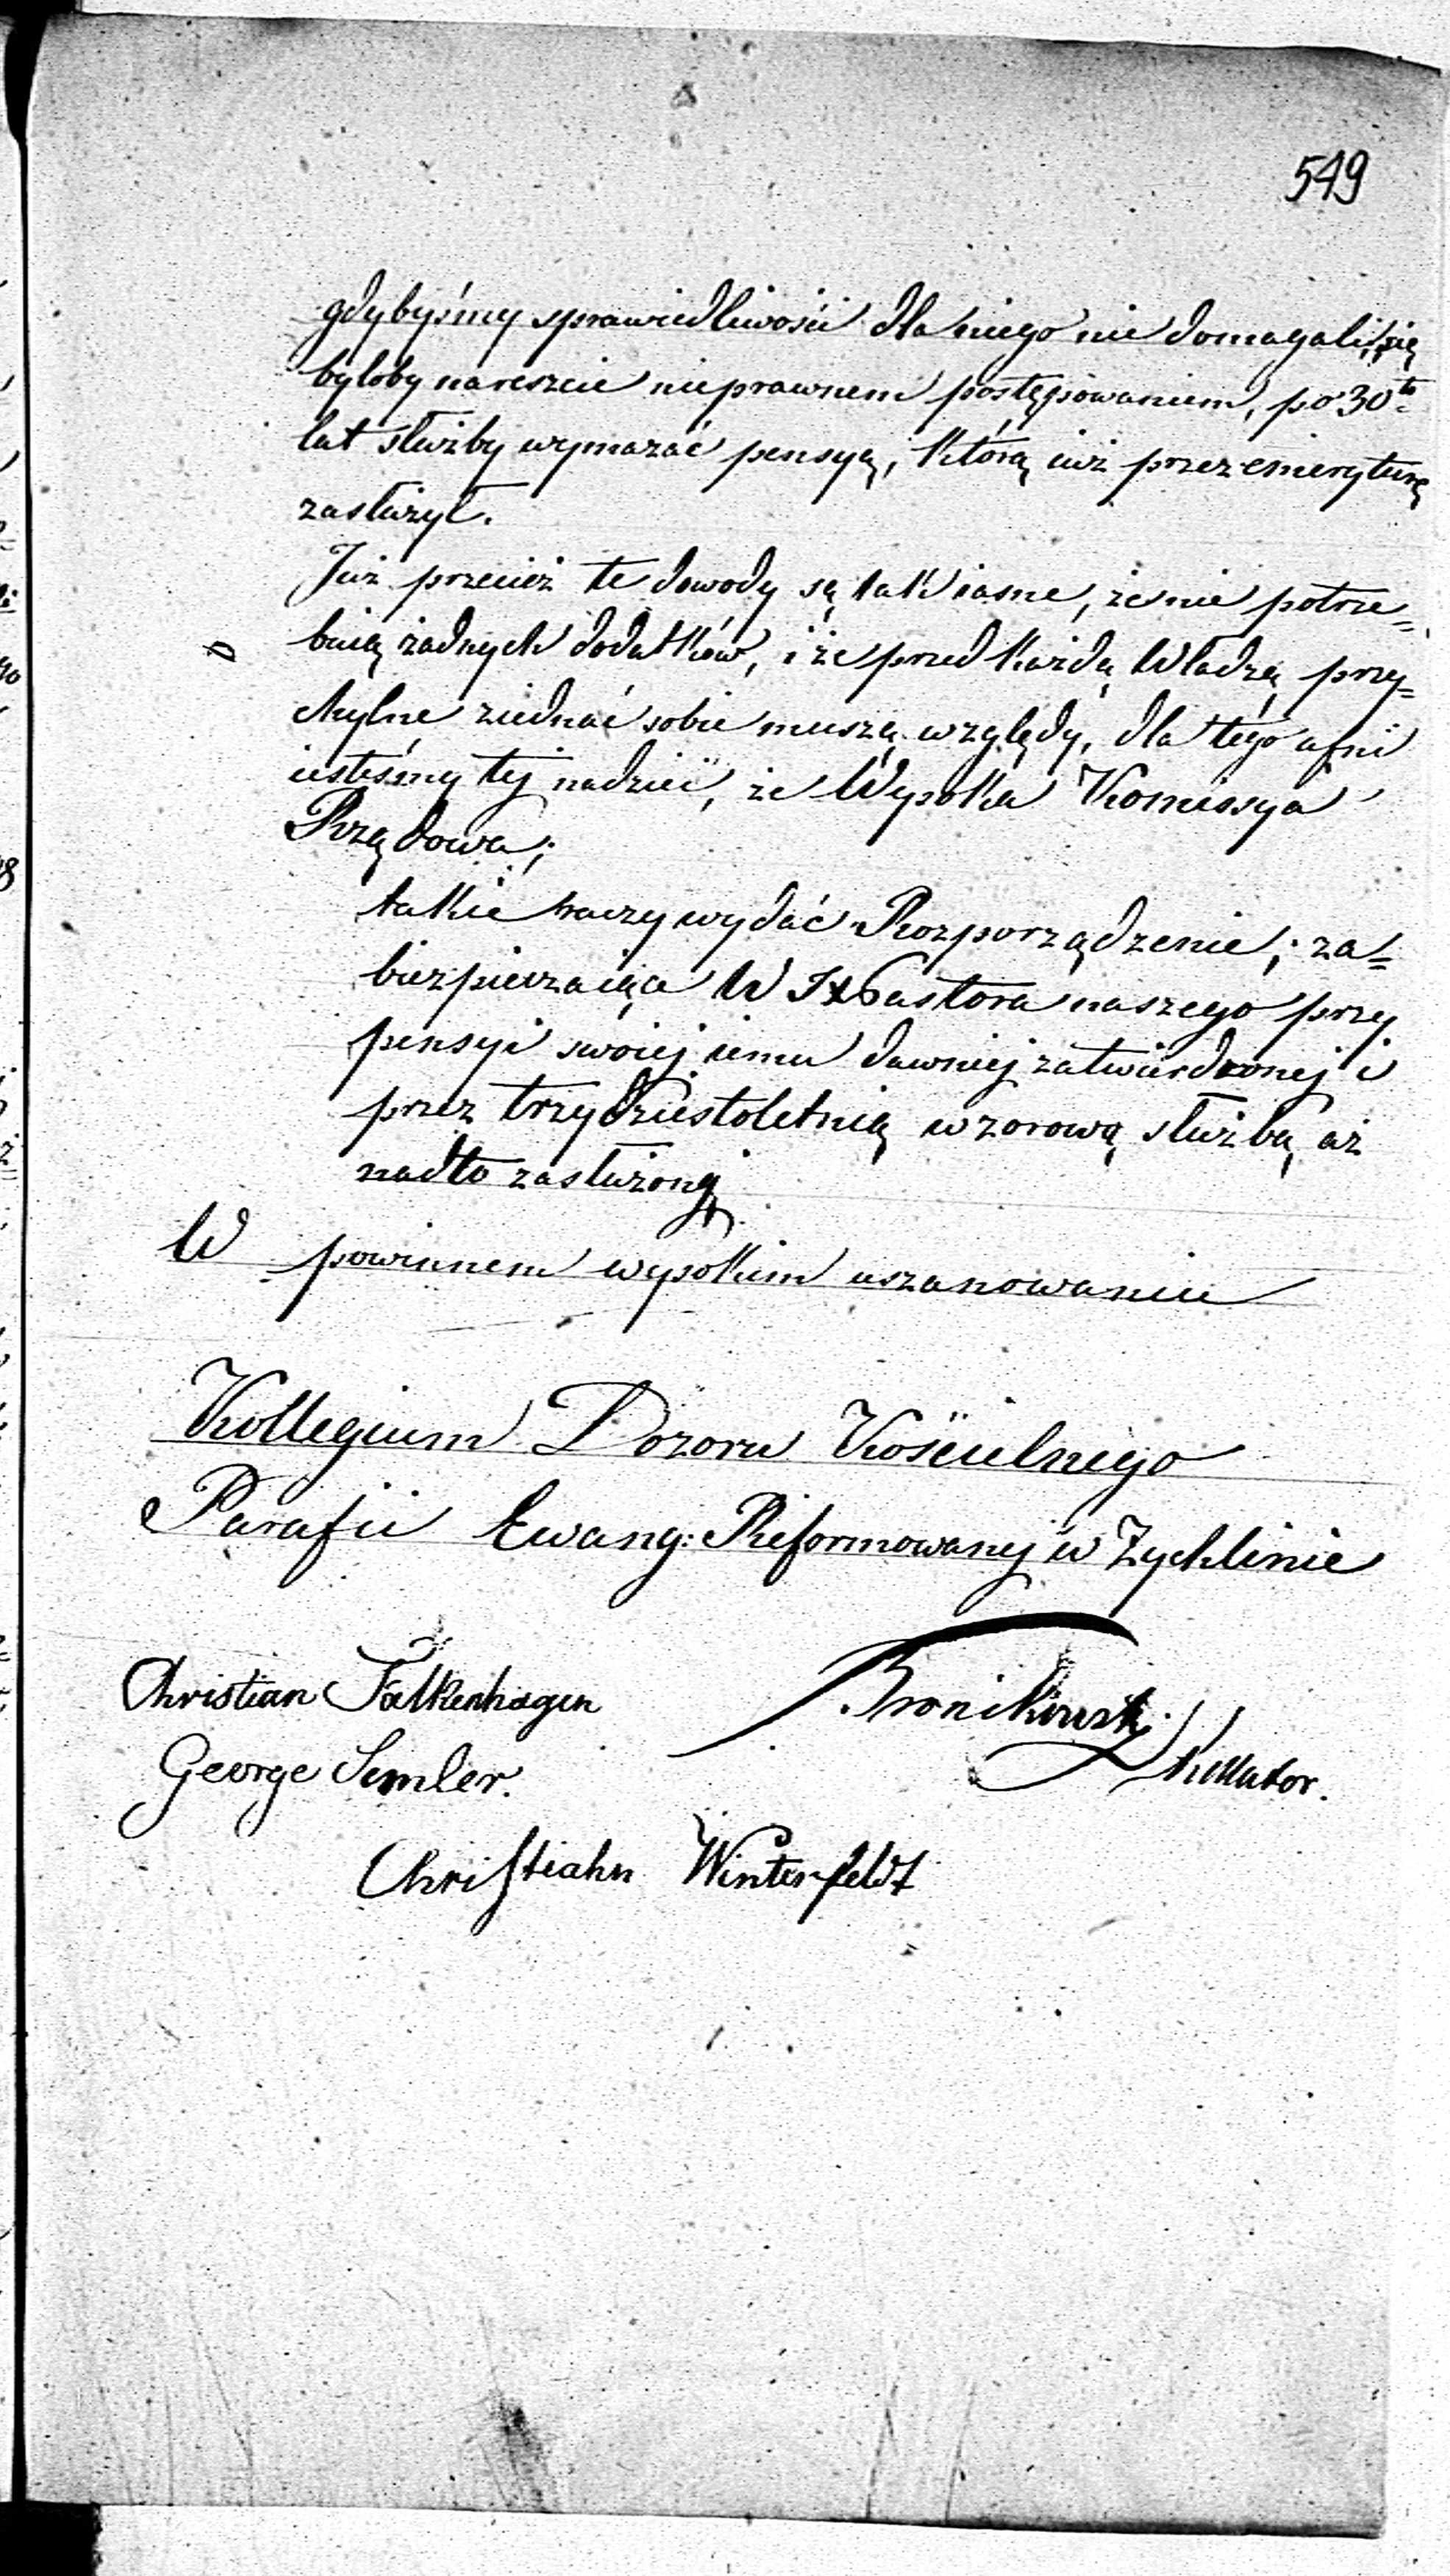 549
gdybyśmy sprawiedliwości dla niego nie domagali się
byłoby nareszcie nieprawnem postępowaniem, po 30tu
lat służby wymazać pensyą, którą iuż przez emeryturę
zasłużył.
Już przecież te dowody są tak iasne, że nie potrze=
buią żadnych dodatków, i że przed każdą Władzą przy=
chylne ziednać sobie muszą względy, dla tego ufni
iesteśmy tej nadziei, że Wysoka Komissya
Rządowa;
takie raczy wydać Rozporządzenie; za=
bezpieczaiące W JX Pastora naszego przy
pensyi swoiej iemu dawniej zatwierdzonej i
przez trzydziestoletnią wzorową służbę aż
nadto zasłużonej
W powinnem wysokim uszanowaniu
Kollegium Dozoru Kościelnego
Parafii Ewang: Reformowanej w Zychlinie
Christian Falkenhagen
Bronikowski
George Semler.
Christiahn Winterfeldt